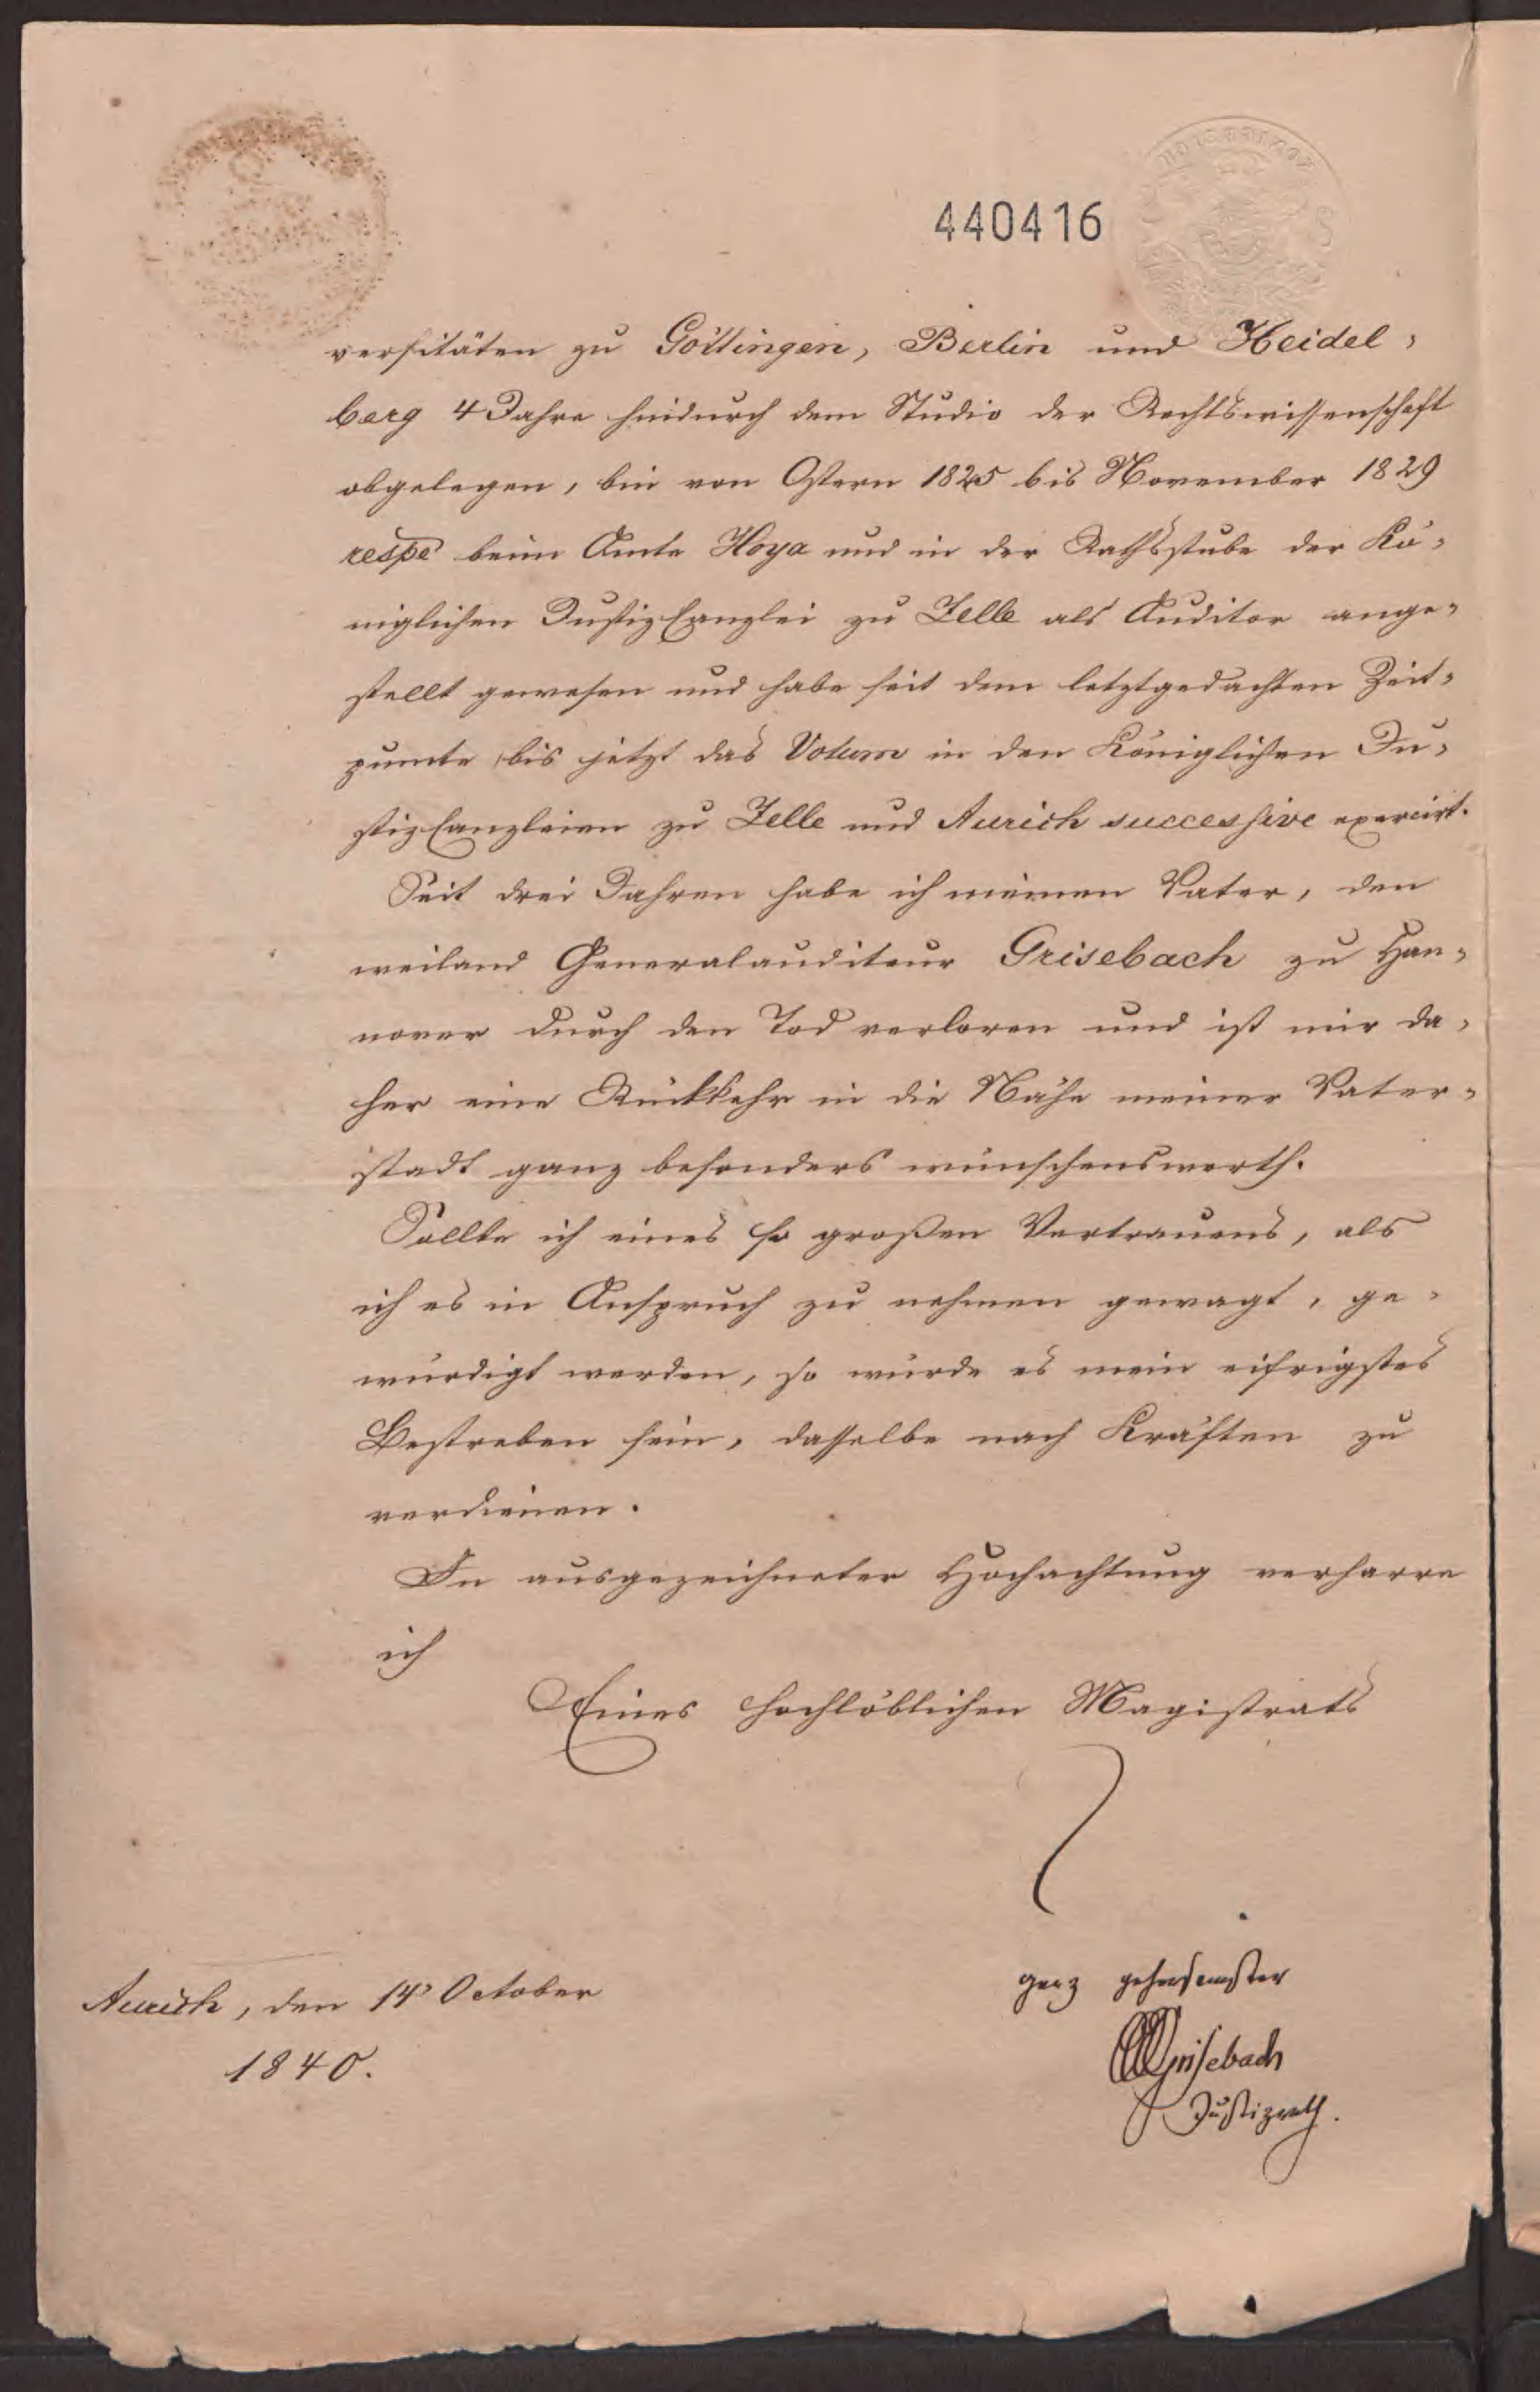 440416
versitäten zu Göttingen, Berlin und Heidel=
berg 4 Jahre hindurch dem Studio der Rechtswissenschaft
obgelegen, bin von Ostern 1825 bis November 1829
respe beim Amte Hoya und in der Rathsstube der Kö=
niglichen Justizcanzlei zu Zelle als Auditor ange=
stellt gewesen und habe seit dem letztgedachten Zeit=
puncte bis jetzt das Votum in den Königlichen Ju=
stizcanzleien zu Zelle und Aurich successive exercirt.
Seit drei Jahren habe ich meinen Vater, den
weiland Generalauditeur Grisebach zu Han=
nover durch den Tod verloren und ist mir da=
her eine Rückkehr in die Nähe meiner Vater=
stadt ganz besonders wünschenswerth.
Sollte ich eines so großen Vertrauens, als
ich es in Anspruch zu nehmen gewagt, ge=
würdigt werden, so würde es mein eifrigstes
Bestreben sein, dasselbe nach Kräften zu
verdienen.
In ausgezeichneter Hochachtung verharre
ich
Eines hochlöblichen Magistrats
ganz gehorsamster
Aurich, den 14 October
1840.
Grisebach
Justizrath.